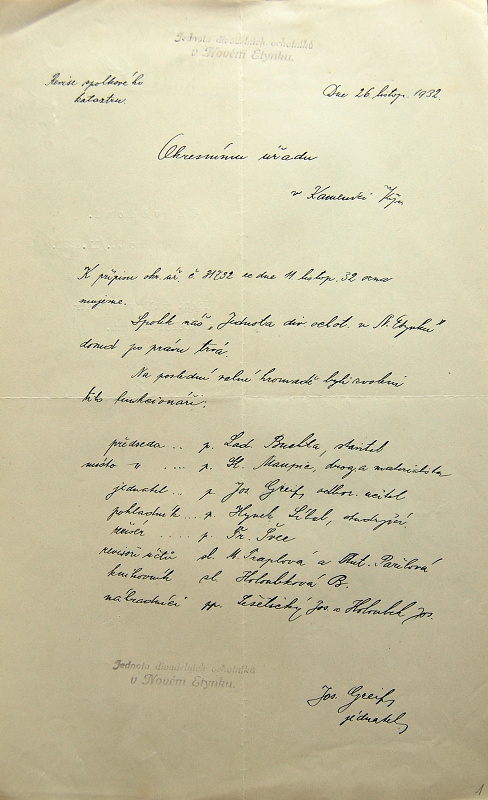 Jednota divadelních ochotníků
v Novém Etynku.
Revise spolkového
katastru.
Dne 26 listop. 1932.
Okresnímu úřadu
v Kamenici
K přípisu okr. úř. č. 31732 ze dne 11 listop. 32 ozna
mujeme.
Spolek náš „Jednota div. ochot. v N. Etynku"
dosud po právu trvá.
Na poslední valné hromadě byli zvoleni
tito funkcionáři:
předseda .. p. Lad. Buchta, stavitel
místo v .... p. St.
jednatel .. p. Jos Greif, odbor. učitel
pokladník .. p. Hynek
režisér .... p. Fr. Švec
revisoři účtů sl. M. Traplová a Ant. Pařilová
knihovník sl. Holoubková B.
náhradníci pp. Lešetický Jos. a Holoubek Jos.
Jednota divadelních ochotníků
v Novém Etynku.
Jos. Greif
jednatel
1